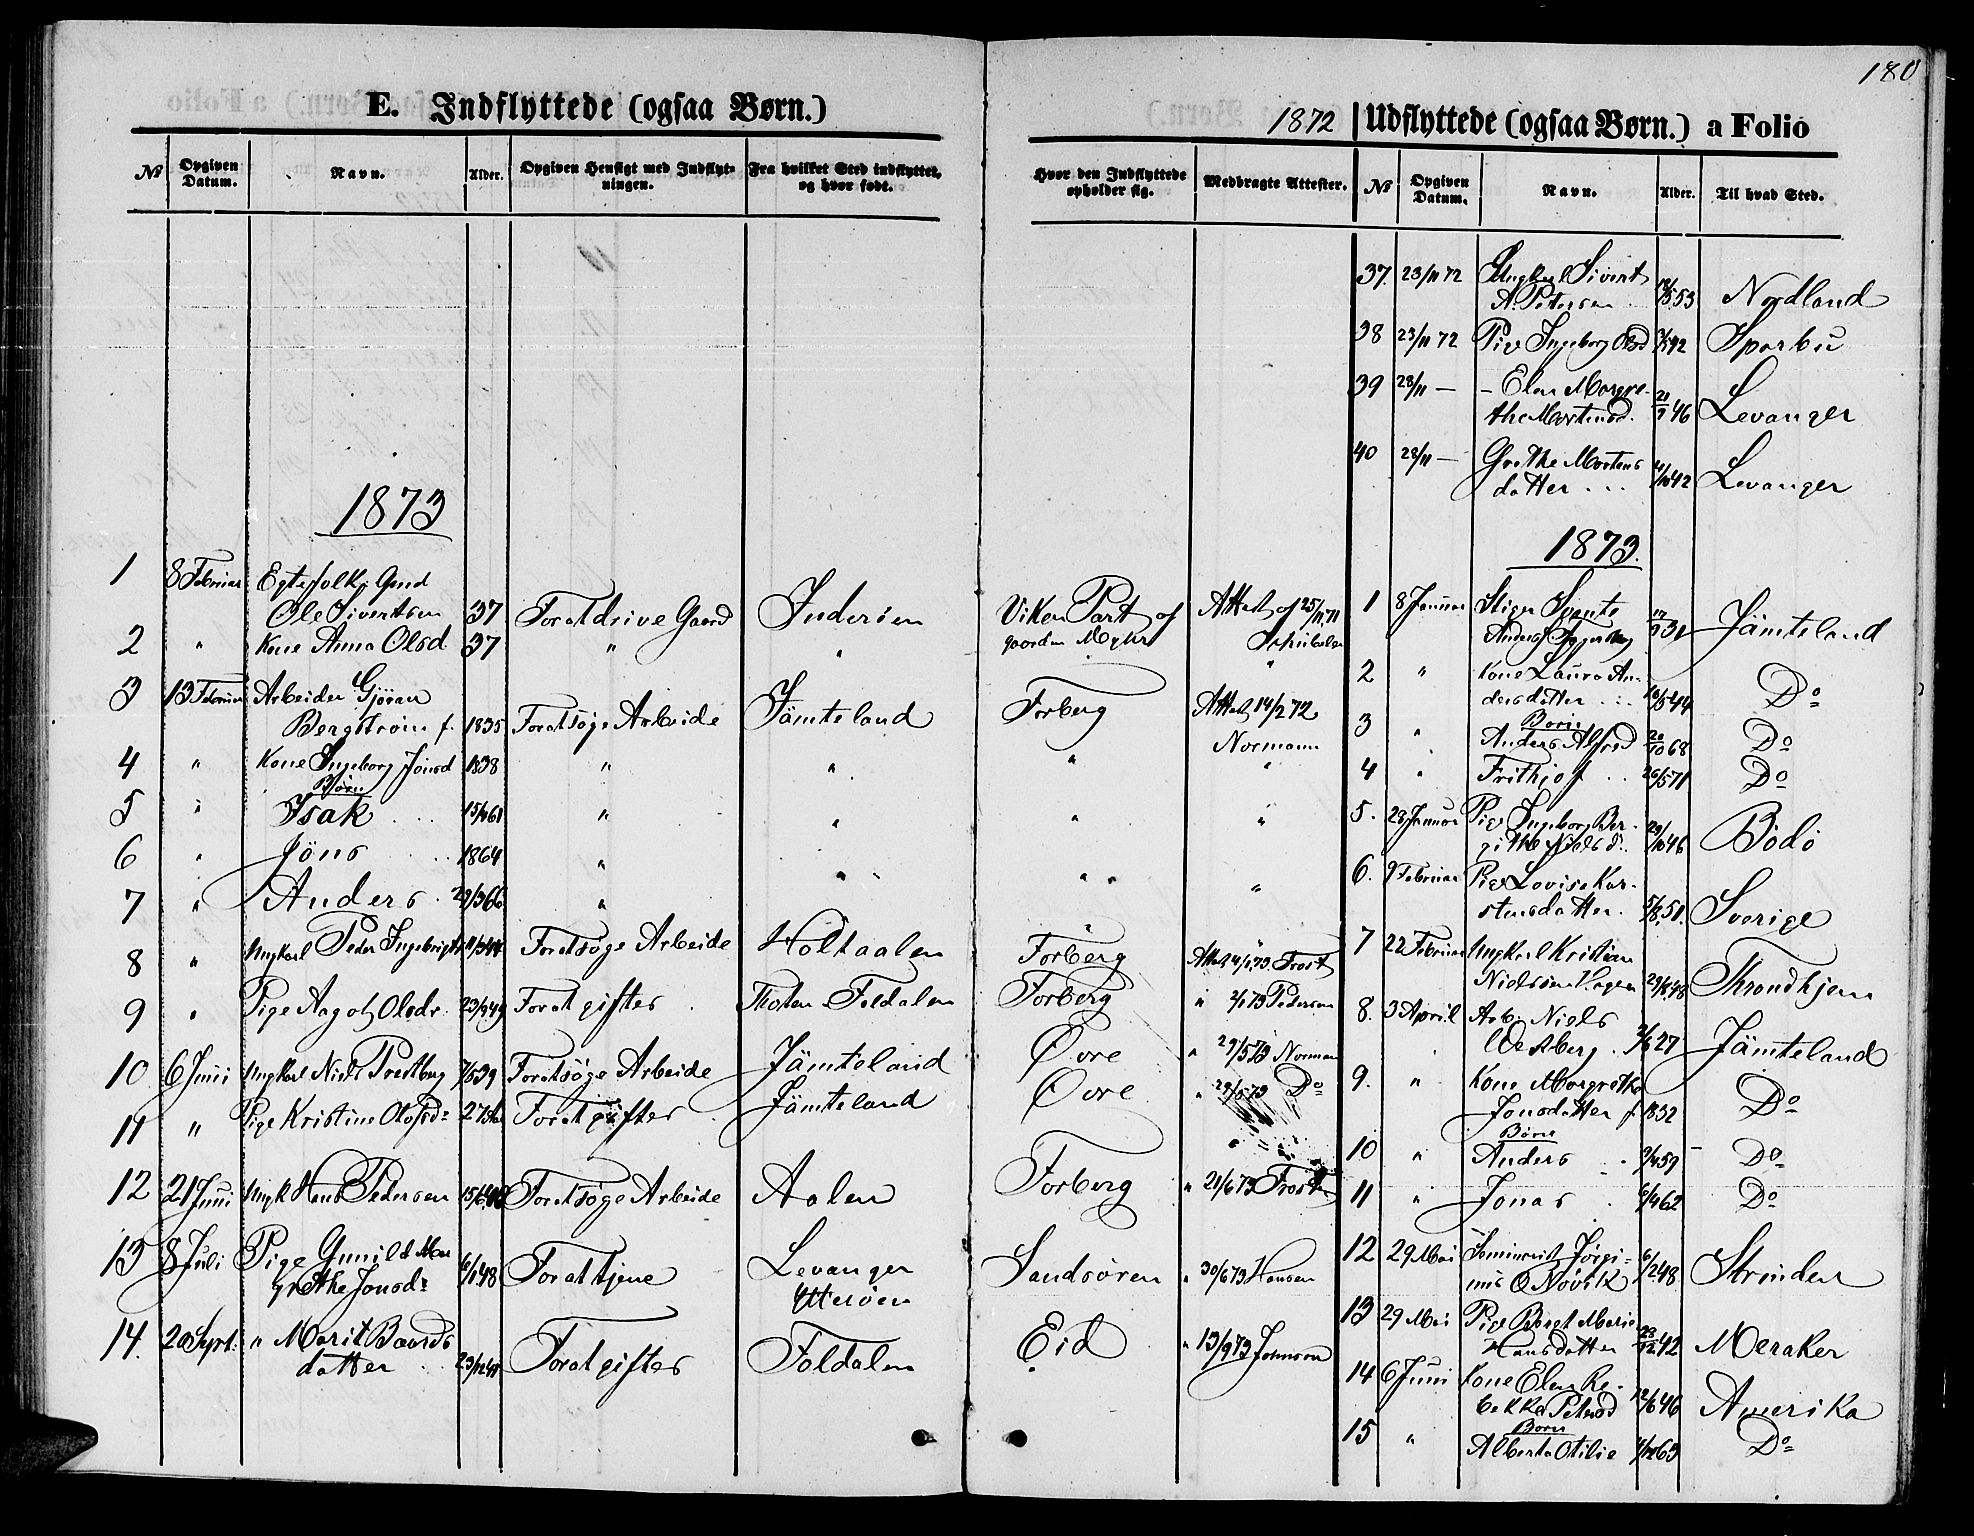 180
E. Indflyttede (ogsaa Børn.)
№ Opgiven Datum. Navn. Alder. Opgiven Hensigt med Indflytningen. Fra hvilket Sted indflyttet, og hvor født.
1873
1 8 Februar Egtefolk: Gmd
Ole Sivertsen 37 For at drive Gaard Inderøen
2 " Kone Anna Olsd 37 " "
3 13 Februar Arbeider Gjøran
Bergstrøm f. 1835 For at søge Arbeide Jämteland
4 " Kone Ingeborg Jonsd 1838 " "
Børn
5 " Isak 15/4 61 " "
6 " Jöns 1864 "
7 " Anders 29/3 66 " "
8 " Ungkarl Peder Ingebrigts 11/3 44 For at søge Arbeide Holtaalen
9 " Pige Aagot Olsdr 23/9 49 For at giftes Foldalen
10 6 Juni Ungkarl Niels Prestberg 7/6 39 For at søge Arbeide Jämteland
11 " Pige Kristine Olofsd: 27 For at giftes Jämteland
12 21 Juni Ungk Hans Pedersen 15/6 For at søge Arbeide Aalen
13 8 Juli Pige Gunild Mar
grethe Jonsd: 6/1 48 For at tjene Levanger
Ytterøen
14. 20 Sept: " Marit Baards
datter 23/12 For at giftes Foldalen
1872 Udflyttede (ogsaa Børn.) a Folio
Hvor den Indflyttede opholder sig. Medbragte Attester. № Opgiven Datum. Navn. Alder. Til hvad Sted.
37. 23/11 72 Ungkarl Sivert
A. Petersen 53 Nordland
38 23/11 72 Pige Ingeborg Olsd 42 Sparbu
39 28/11 — – Elen Margre-
the Martinsd. 21/9 46 Levanger
40 28/11 — Grethe Mortens
datter 4/10 42 Levanger
1873.
Viken Part af Attest af 25/11 71 1 8 Januar
gaarden 31 Jämteland
" 2 " Kone Laura An-
dersdatter 16/5 44 Do
Forberg Attest 14/2 72 Børn
Normann 3 " Anders Alfred 20/10 68 Do
" " 4 " Frithjof 26/5 71 Do
" " 5. 28 Januar Pige Ingeborg Ber-
githe Nielsd. 29/10 46 Bodö
" " 6. 9 Februar Pige Lovise Kar-
stensdatter. 5/8 51. Sverige
Forberg Attest 4/1 73. Frost 7 22 Februar Ungkarl Kristian
Nielsen Hagen 29/8 48 Throndhjem
Forberg " 2/1 73 Pedersen 8. 3 April Arb: Niels
Øvre " 29/5 73 Norman Westberg 27 Jämteland
Øvre " 29/5 73 Do 9. " Kone Margretha
Jonsdatter f. 1832 Do
Børn
10 " Anders 9/4 59 Do
Forberg " 21/6 73 Frost 11 " Jonas 6/4 62 Do
Sandsøren " 30/6 73 Hansen 12 29 Mai Seminarist Jørgi-
nus O Növik 6/2 48. Strinden
Eid " 13/9 73 Johnson 13 29 Mai Pige Beret Marie
Hansdatter 23/12 42 Meraker
14 6 Juni Kone Elen Re-
bekka Petersd 12/6 46 Amerika
Børn
15 " Alberta Otilie 63 Do